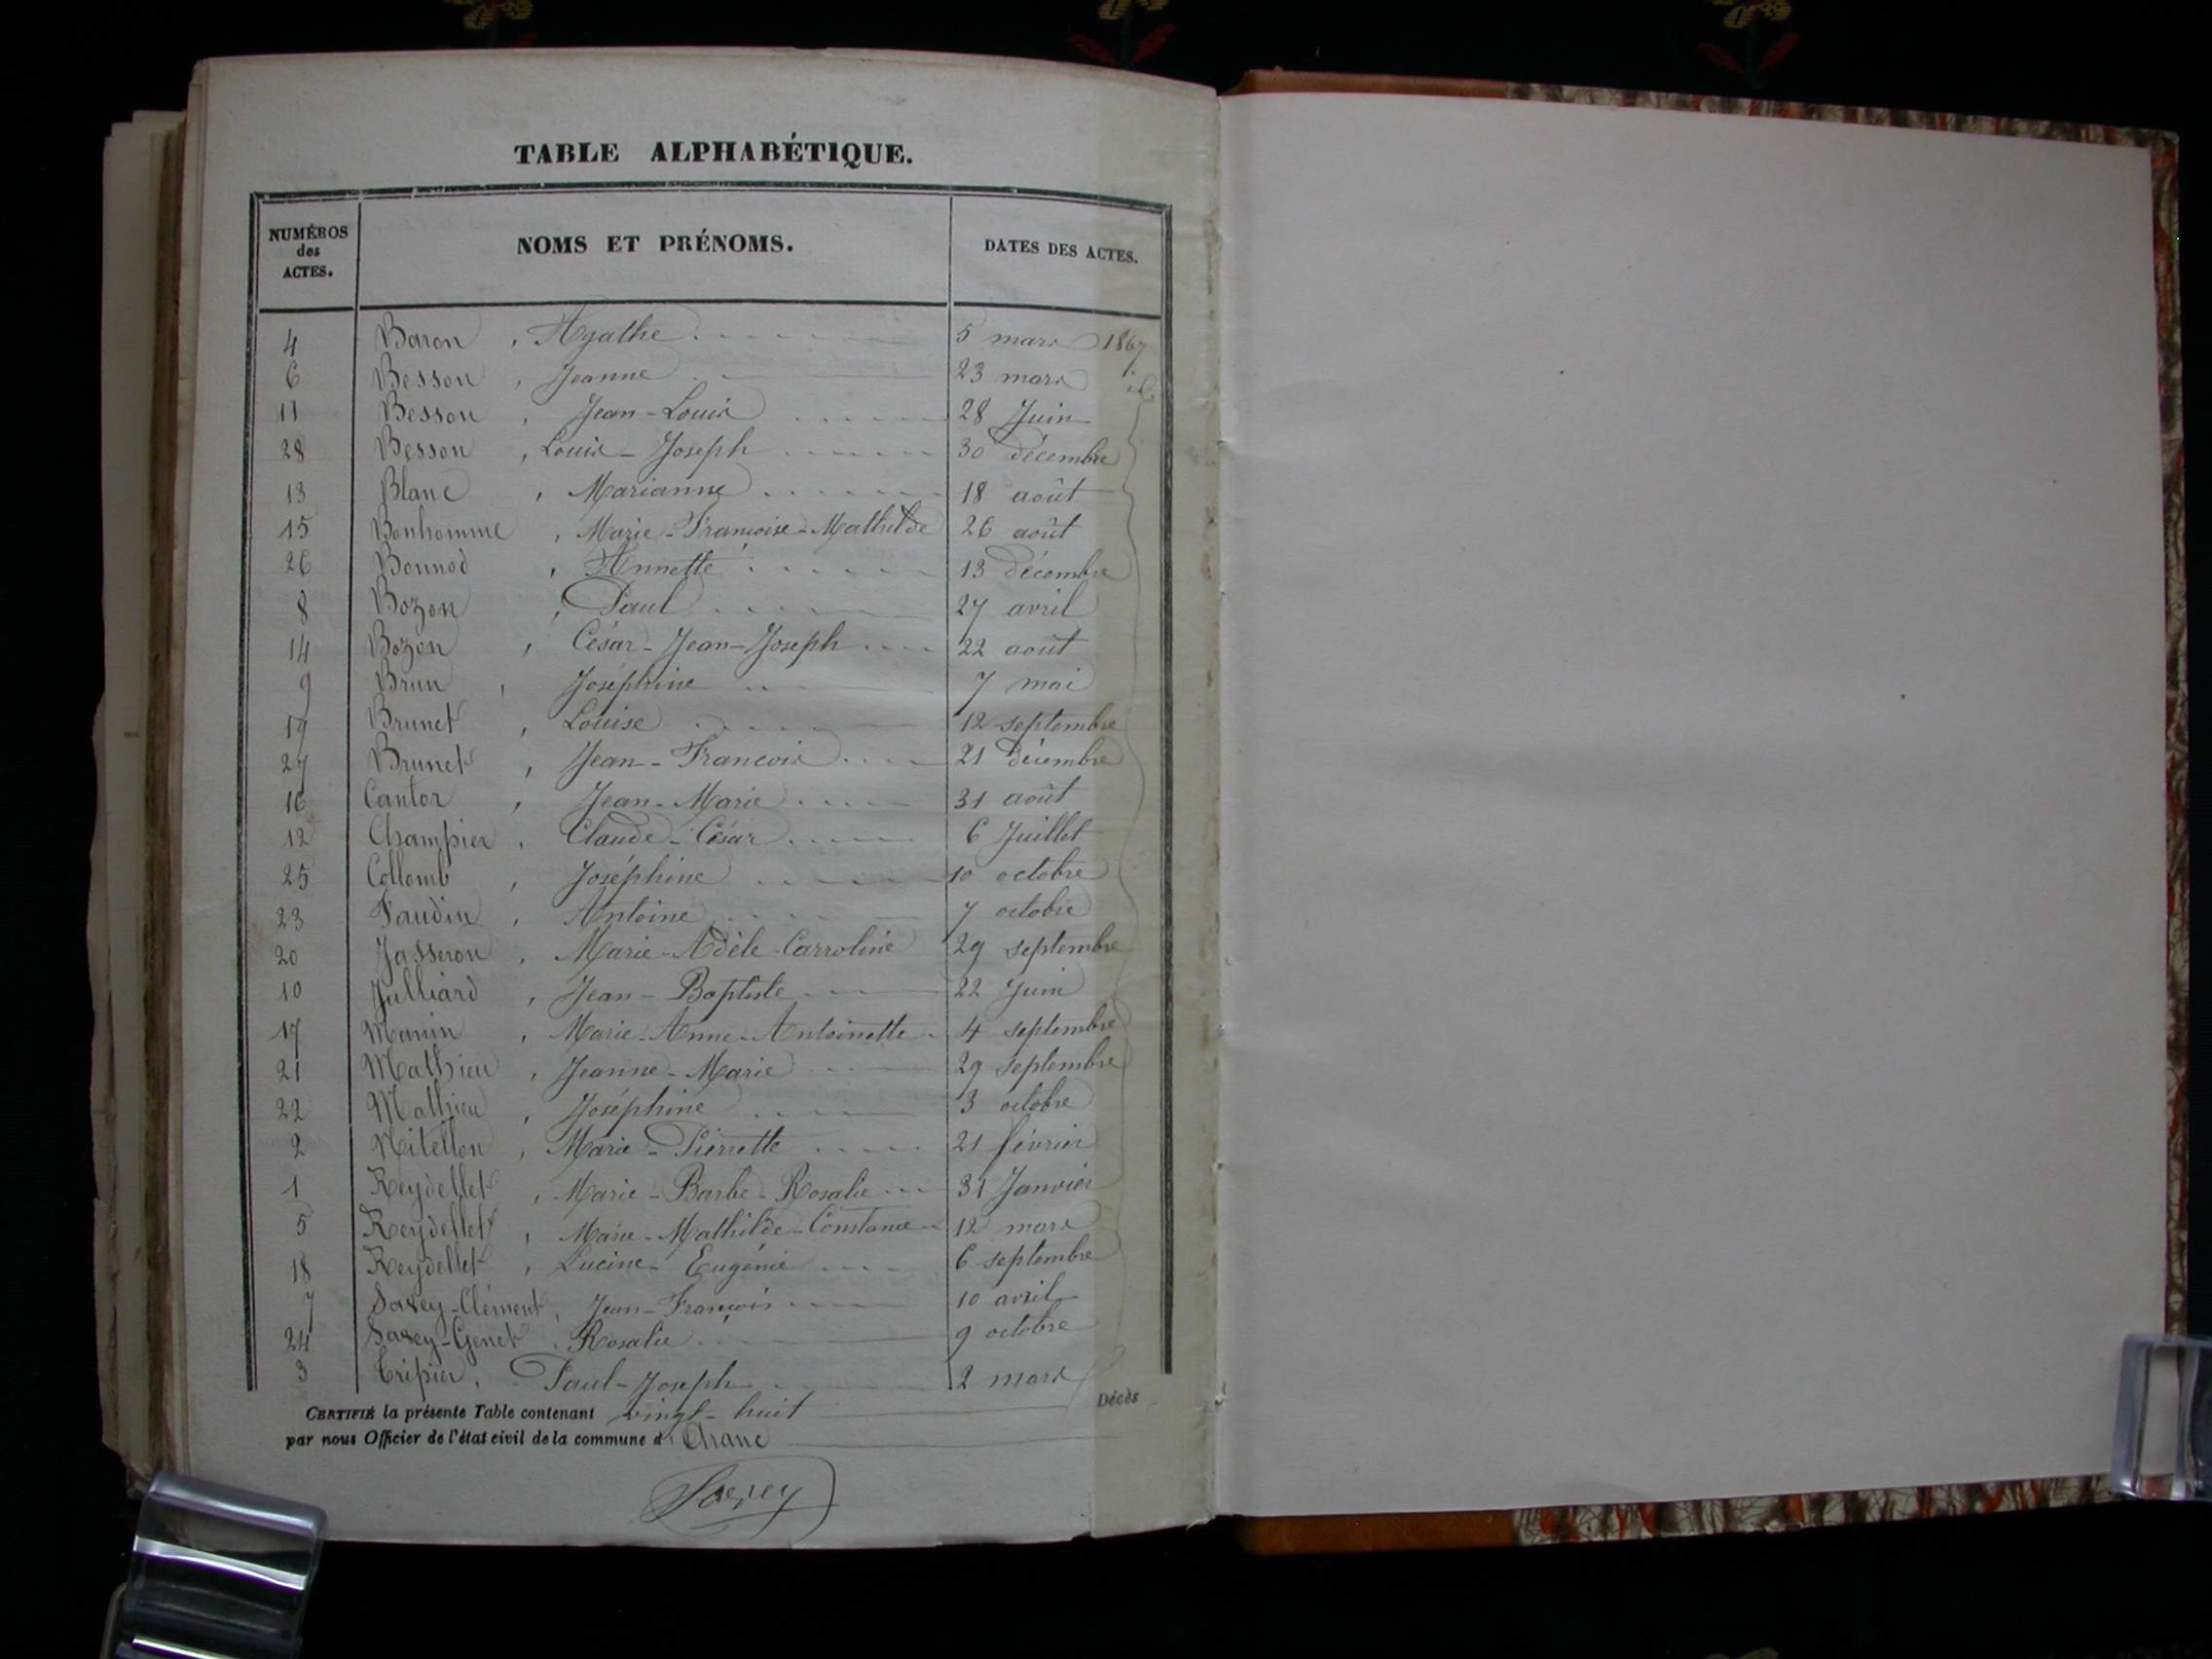 TABLE ALPHABÉTIQUE.
NUMÉROS des ACTES. NOMS ET PRÉNOMS. DATES DES ACTES.
4 Baron, Agathe 5 mars 1867
6 Besson, Jeanne 23 mars id
11 Besson, Jean-Louis 28 Juin
28 Besson, Louis-Joseph 30 décembre
13 Blanc, Marianne 18 août
15 Bonhomme, Marie-Francoise-Mathilde 26 août
26 Bonnod, Annette 13 décembre
8 Bozon, Paul 27 avril
14 Bozon, César-Jean-Joseph 22 août
9 Brun, Joséphine 7 mai
19 Brunet, Louise 12 septembre
27 Brunet, Jean-Francois 21 décembre
16 Cantor, Jean-Marie 31 août
12 Champier, Claude-César 6 Juillet
25 Collomb, Joséphine 10 octobre
23 Faudin, Antoine 7 octobre
20 Jasseron, Marie-Adèle-Carroline 29 septembre
10 Julliard, Jean-Baptiste 22 Juin
17 Manin, Marie-Anne-Antoinette 4 septembre
21 Mathieu, Jeanne-Marie 29 septembre
22 Mathieu, Joséphine 3 octobre
2 Nitellon, Marie-Pierrette 21 février
1 Reydellet, Marie-Barbe-Rosalie 31 Janvier
5 Reydellet, Marie-Mathilde-Constance 12 mars
18 Reydellet, Lucine-Eugénie 6 septembre
7 Savey-Clément, Jean-François 10 avril
24 Savey-Genet, Rosalie 9 octobre
3 Tripier, Paul-Joseph 2 mars
CERTIFIÉ la présente Table contenant vingt-huit Décès
par nous Officier de l'état civil de la commune d
Savey